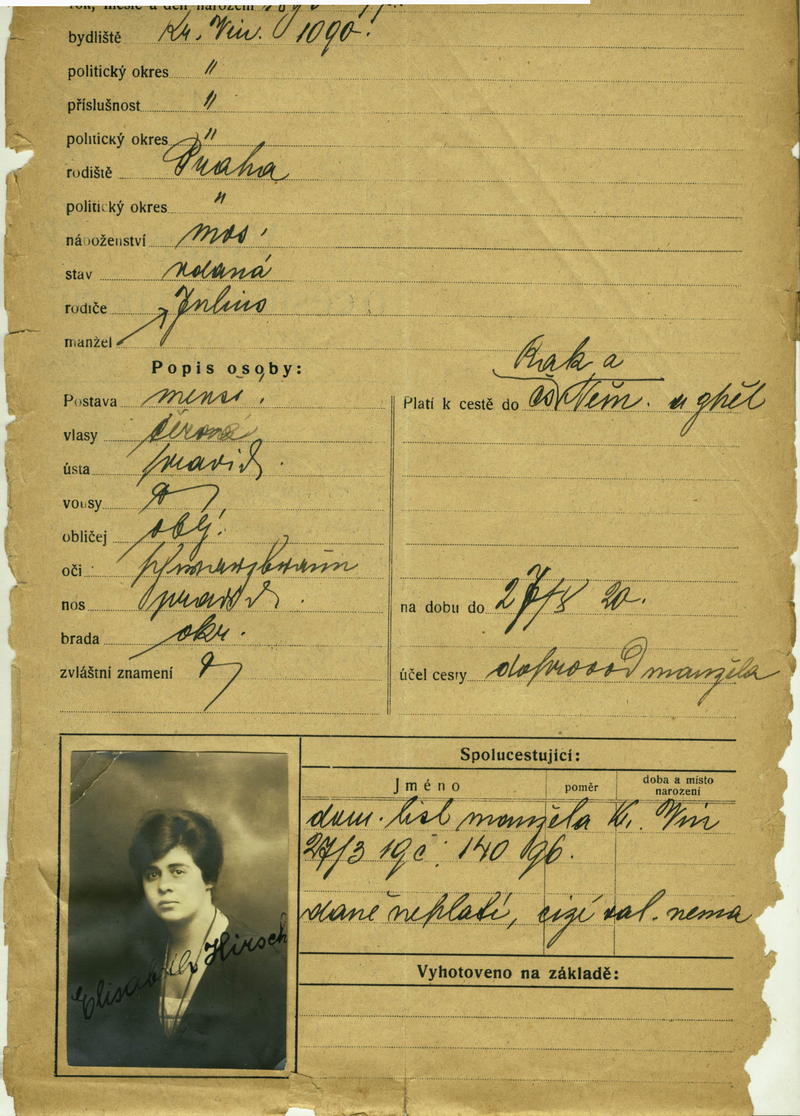 rok, měsíc a den narození
bydliště Kr. Vin. 1090.
politický okres "
příslušnost "
politický okres "
rodiště Praha
politický okres "
náboženství mos.
stav vdaná
rodiče Julius
manžel
Popis osoby:
Postava menší.
vlasy černé
ústa pravid.
vousy
obličej obly.
oči schwarzbraun
nos pravid.
brada okr.
zvláštní znamení
Rak a
Platí k cestě do čs Něm. a
na dobu do 27/ 20.
účel cesty doprovod manžela
Elisabeth Hirsch
Spolucestující:
Jméno poměr doba a místo narození
dom. list manžela K. Vin
27/3 140 96.
daně neplatí, cizí val. nemá
Vyhotoveno na základě: